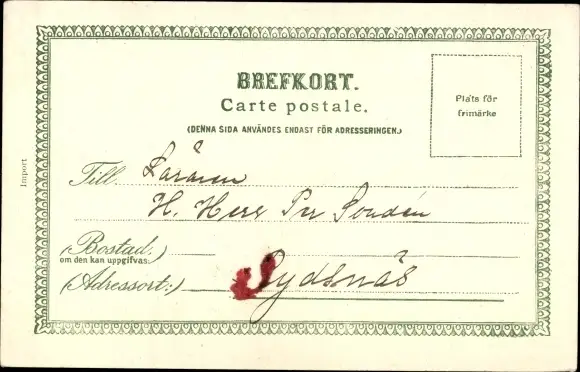 BREFKORT.
Carte postale.
(DENNA SIDA ANVÄNDES ENDAST FÖR ADRESSERINGEN.)
Plats för
frimärke
Import
Till Läraren
H. Herr Per Sondén
(Bostad:)
om den kan uppgifvas.
(Adressort:) Sydsnäs